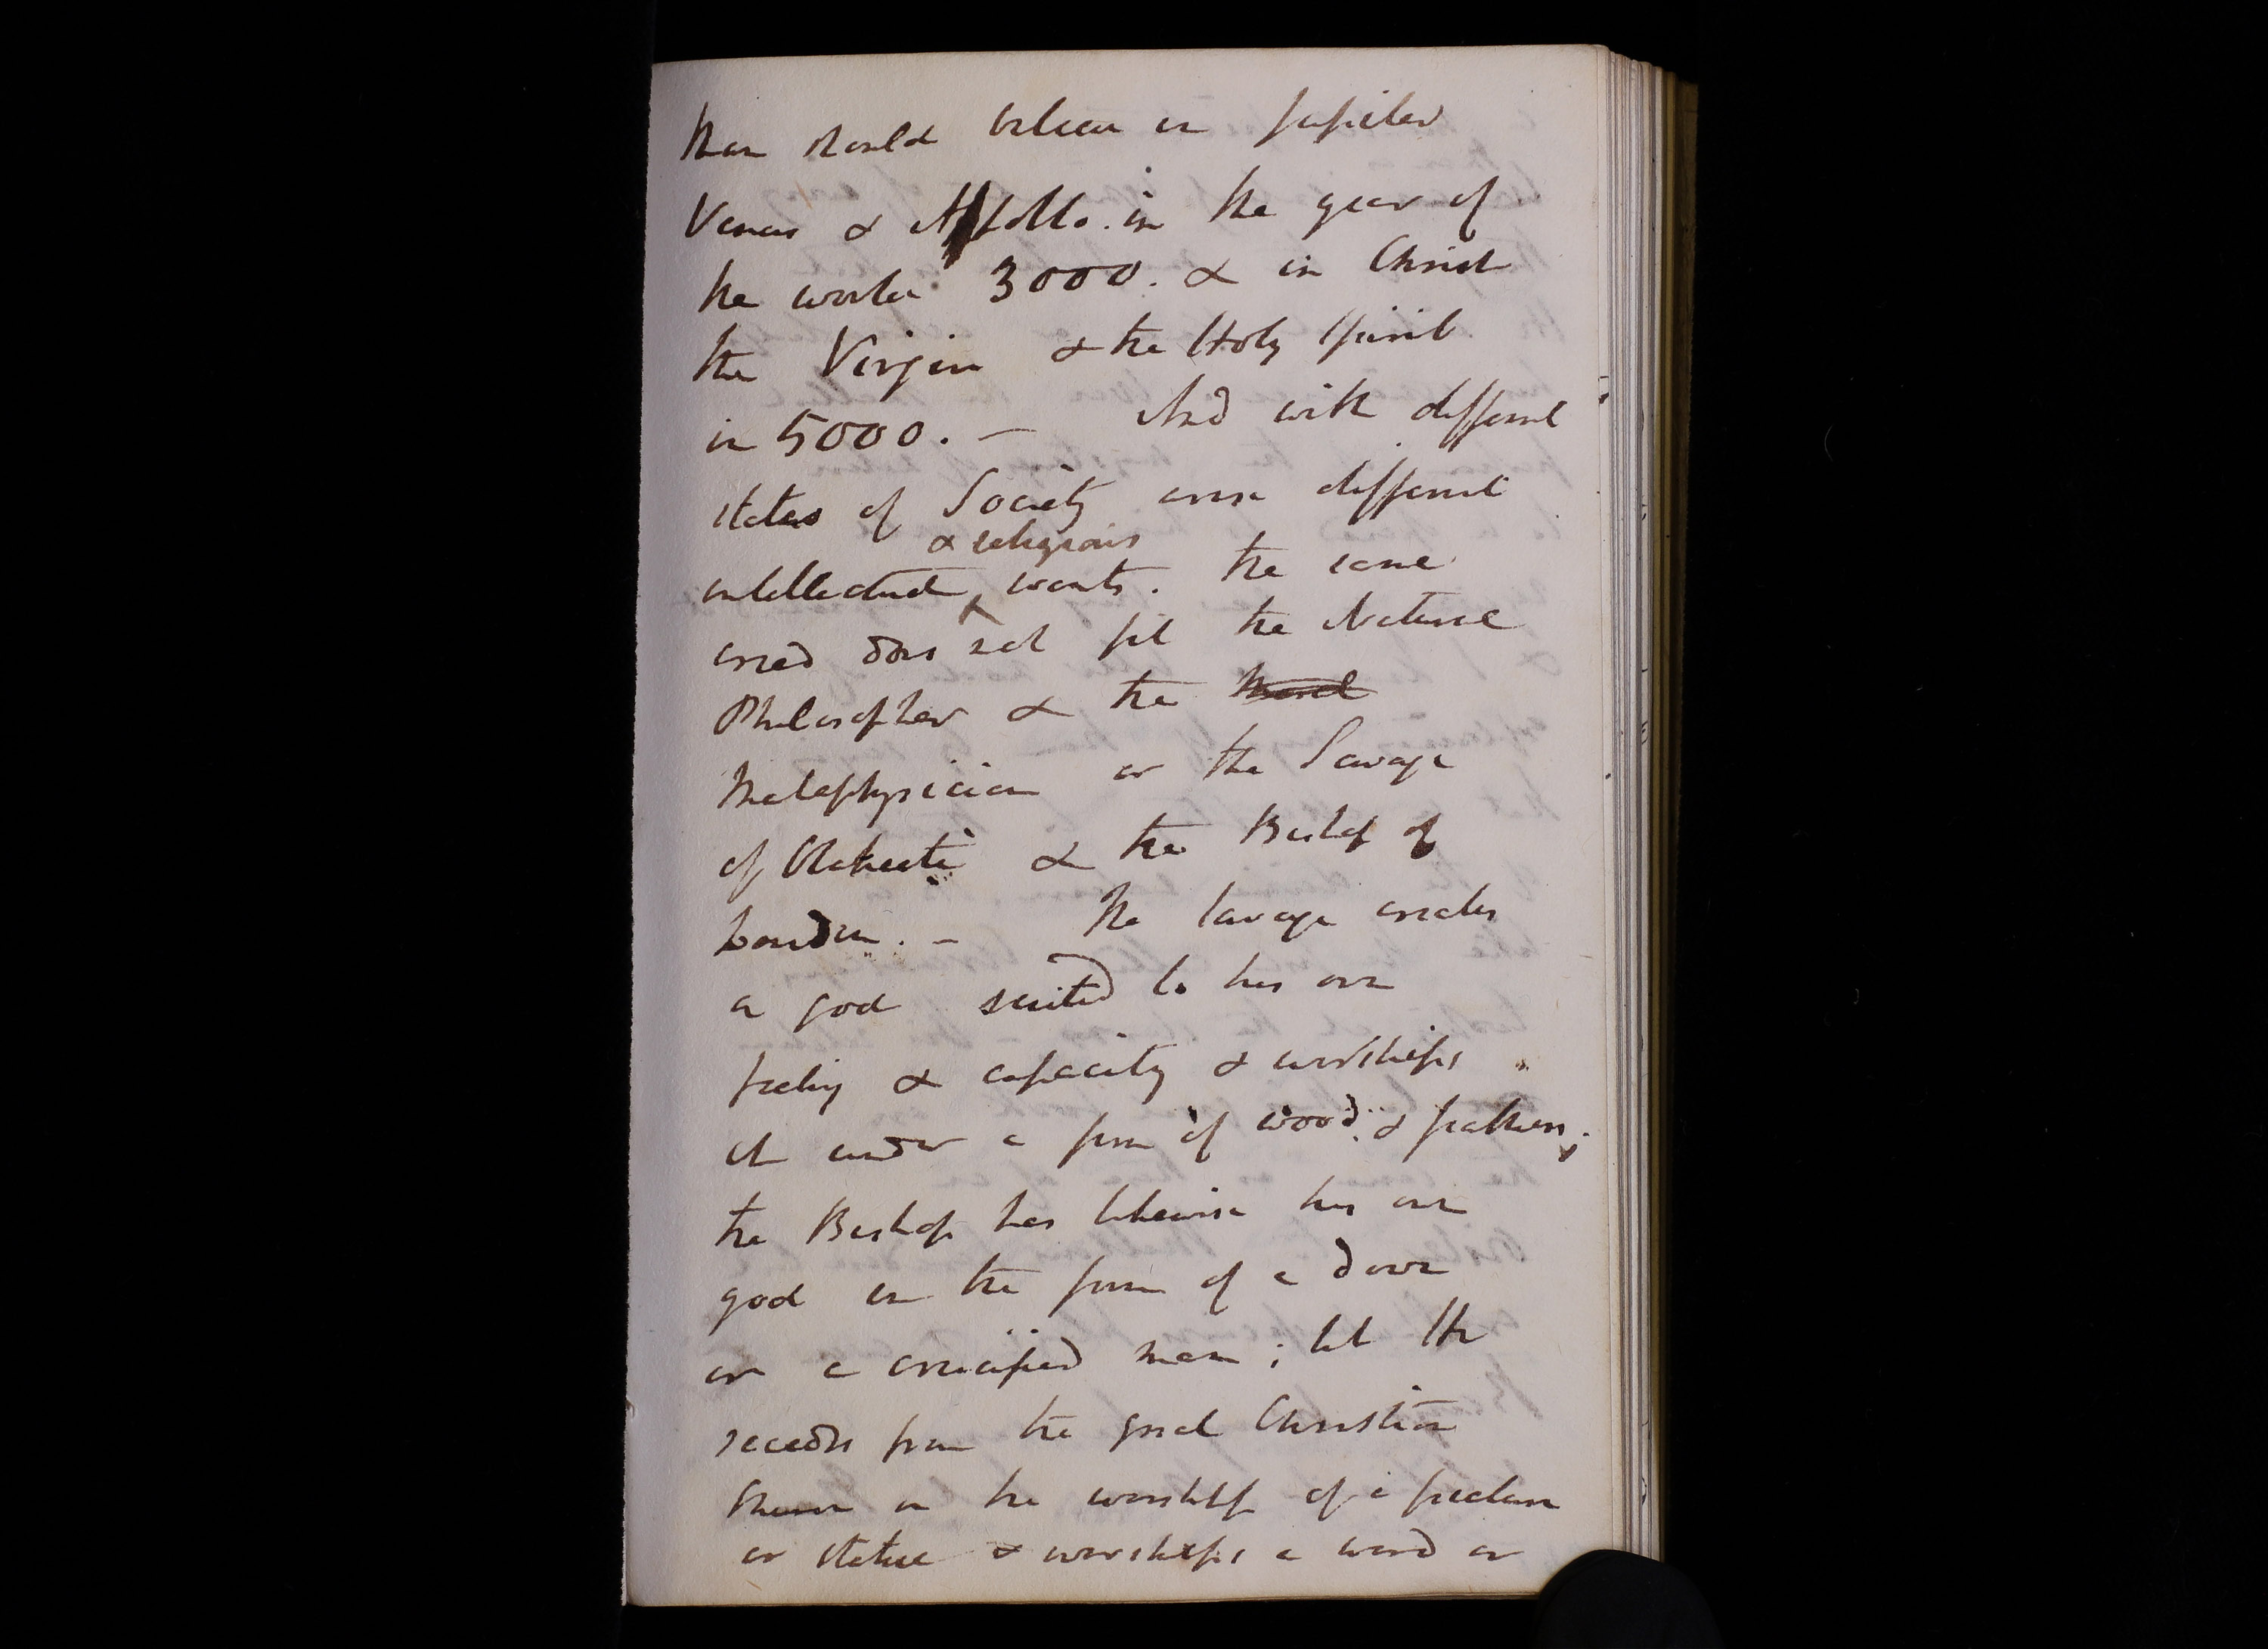 Man should believe in Jupiter
Venus & Apollo. in the year of
the world 3000. & in Christ
the Virgin & the Holy Spirit
in 5000. — And with different
states of Society arise different
intellectual & religious wants. The same
creed does not fit the Natural
Philosopher & the Moral
Metaphysician or the Savage
of Otaheite & the Bishop of
London. – The savage creates
a god suited to his own
feeling & capacity & worships
it under a form of wood & feathers;
the Bishop has likewise his own
god in the form of a dove
or a crucified man; let the
recedes from the good Christian
in the worship of a picture
or statue & worships a word or